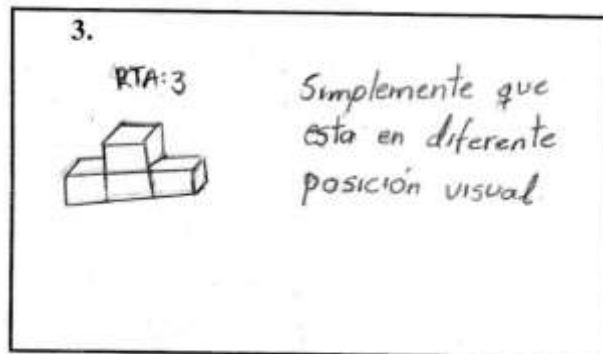 3.
RTA: 3
Simplemente que
esta en diferente
posición visual